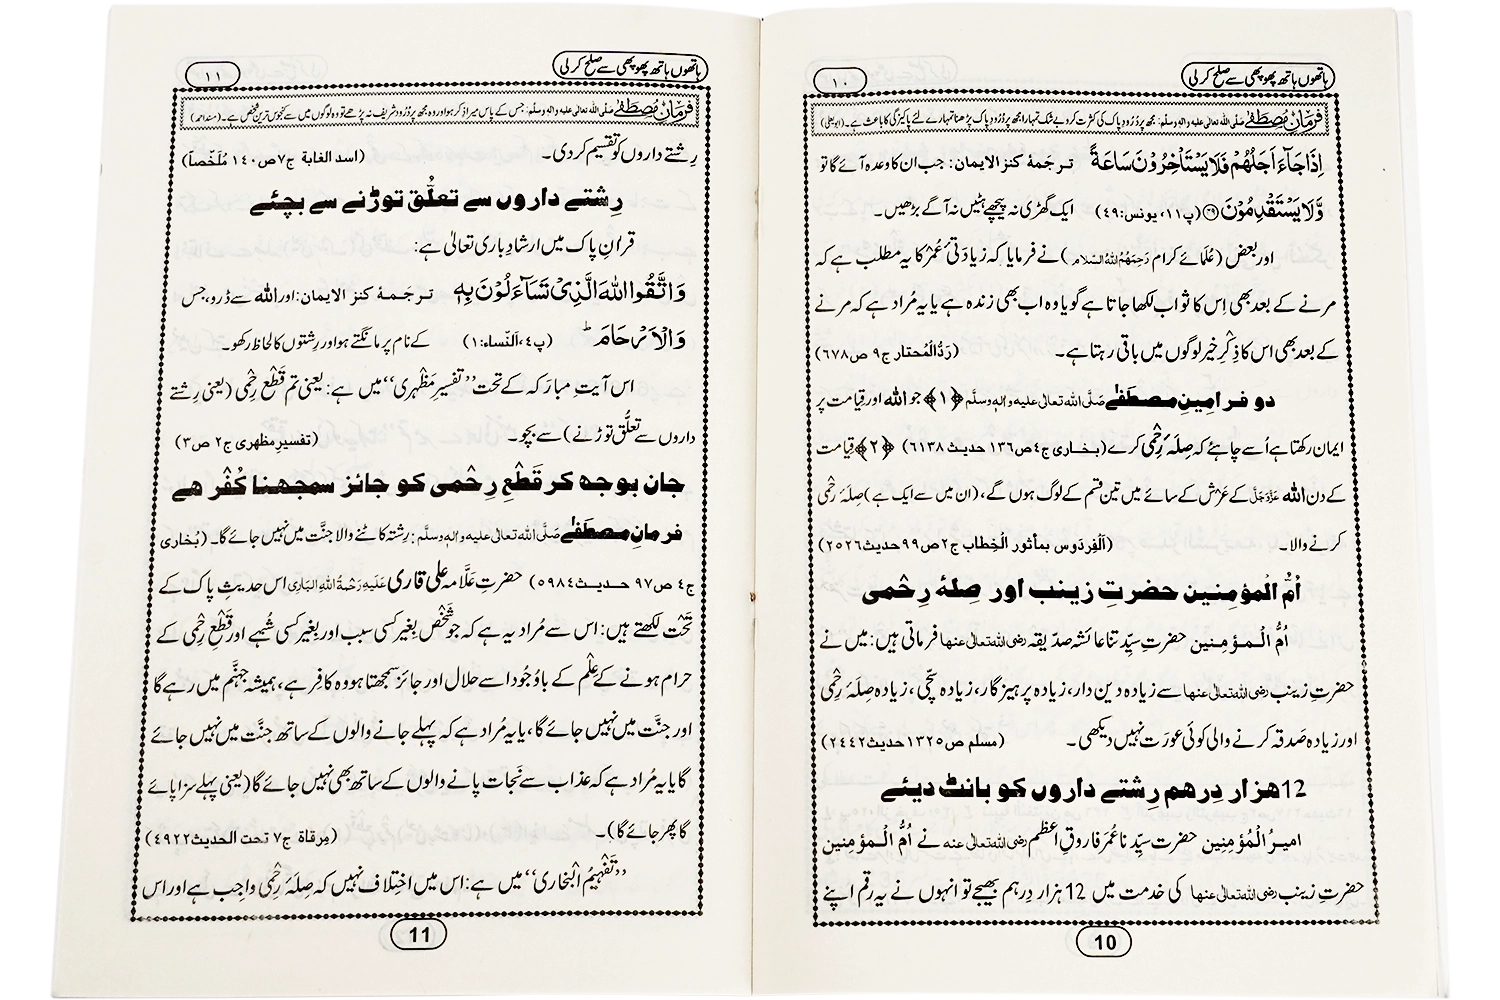 ہاتھوں ہاتھ پھوپھی سے صلح کر لی
۱۰
فرمانِ مُصطَفٰے صلی اللہ تعالیٰ علیہ والہ وسلم: مجھ پر دُرُودِ پاک کی کثرت کرو بے شک تمہارا مجھ پر دُرُودِ پاک پڑھنا تمہارے لئے پاکیزگی کا باعث ہے۔ (ابویعلی)
اِذَا جَآءَ اَجَلُهُمْ فَلَا يَسْتَاْخِرُوْنَ سَاعَةً ترجَمۂ کنز الایمان: جب ان کا وعدہ آئے گا تو
وَّلَا يَسْتَقْدِمُوْنَ ﴿۴۹﴾ (پ۱۱، یونس:۴۹) ایک گھڑی نہ پیچھے ہٹیں نہ آگے بڑھیں۔
اور بعض (عُلَمائے کرام رَحِمَہُمُ اللہُ السّلام) نے فرمایا کہ زیادَتیٔ عُمْر کا یہ مطلب ہے کہ
مرنے کے بعد بھی اِس کا ثواب لکھا جاتا ہے گویا وہ اب بھی زندہ ہے یا یہ مُراد ہے کہ مرنے
کے بعد بھی اس کا ذِکْرِ خیر لوگوں میں باقی رہتا ہے۔ (رَدُّالْمُحتار ج۹ ص۶۷۸)
دو فرامینِ مصطَفٰے صَلَّی اللہ تعالیٰ علیہ والہٖ وسلَّم ﴿۱﴾ جو اللہ اور قیامت پر
ایمان رکھتا ہے اُسے چاہئے کہ صِلَۂ رَحْمی کرے (بخاری ج۴ ص۱۳۶ حدیث ۶۱۳۸) ﴿۲﴾ قِیامت
کے دن اللہ عَزَّوَجَلَّ کے عَرْش کے سائے میں تین قسم کے لوگ ہوں گے، (ان میں سے ایک ہے) صِلَۂ رَحْمی
کرنے والا۔ (اَلْفِردَوس بمأثور الْخِطاب ج۲ ص۹۹ حدیث۲۵۲۶)
اُمُّ الْمؤمِنین حضرتِ زینب اور صِلۂ رِحْمی
اُمُّ الْمؤمِنین حضرتِ سیِّدتُنا عائشہ صدّیقہ رضی اللہ تعالیٰ عنہا فرماتی ہیں: میں نے
حضرتِ زینب رضی اللہ تعالیٰ عنہا سے زیادہ دین دار، زیادہ پرہیز گار، زیادہ سچّی، زیادہ صِلَۂ رَحْمی
اور زیادہ صَدقہ کرنے والی کوئی عورَت نہیں دیکھی۔ (مسلم ص۱۳۲۵ حدیث۲۴۴۲)
12ہزار دِرہم رِشتے داروں کو بانٹ دیئے
امیرُ الْمُؤمِنِین حضرتِ سیِّدُنا عُمَر فاروقِ اعظم رضی اللہ تعالیٰ عنہ نے اُمُّ الْمؤمنین
حضرتِ زینب رضی اللہ تعالیٰ عنہا کی خدمت میں 12 ہزار دِرہم بھیجے تو انہوں نے یہ رقم اپنے
10
ہاتھوں ہاتھ پھوپھی سے صلح کر لی
۱۱
فرمانِ مُصطَفٰے صلی اللہ تعالیٰ علیہ والہ وسلم: جس کے پاس میرا ذکر ہو اور وہ مجھ پر دُرُود شریف نہ پڑھے تو وہ لوگوں میں سے کنجوس ترین شخص ہے۔ (مسند احمد)
رِشتے داروں کو تقسیم کر دی۔ (اسد الغابة ج۷ ص۱۴۰ مُلَخّصاً)
رِشتے داروں سے تعلُّق توڑنے سے بچئے
قرانِ پاک میں ارشادِ باری تعالیٰ ہے:
وَاتَّقُوا اللّٰهَ الَّذِيْ تَسَآءَلُوْنَ بِهٖ ترجَمۂ کنز الایمان: اور اللہ سے ڈرو، جس
وَالْاَرْحَامَ ؕ (پ۴، اَلنِّساء:۱) کے نام پر مانگتے ہو اور رِشتوں کا لحاظ رکھو۔
اس آیتِ مبارَکہ کے تحت ’’تفسیرِ مَظْہَری‘‘ میں ہے: یعنی تم قَطْعِ رَحْمی (یعنی رِشتے
داروں سے تعلُّق توڑنے) سے بچو۔ (تفسیرِ مظہری ج۲ ص۳)
جان بوجھ کر قَطْعِ رِحْمی کو جائز سمجھنا کُفْر ہے
فرمانِ مصطَفٰے صَلَّی اللہ تعالیٰ علیہ والہٖ وسلَّم: رِشتہ کاٹنے والا جنّت میں نہیں جائے گا۔ (بُخاری
ج۴ ص۹۷ حدیث۵۹۸۴) حضرتِ علّامہ علی قاری عَلَیْہِ رَحْمۃُ اللہِ البَارِی اس حدیثِ پاک کے
تَحْت لکھتے ہیں: اس سے مُراد یہ ہے کہ جو شَخْص بِغیر کسی سبب اور بِغیر کسی شُبہے اور قَطْعِ رَحْمی کے
حرام ہونے کے عِلْم کے باوُجُود اسے حلال اور جائز سمجھتا ہو وہ کافِر ہے، ہمیشہ جہنَّم میں رہے گا
اور جنَّت میں نہیں جائے گا، یا یہ مُراد ہے کہ پہلے جانے والوں کے ساتھ جنّت میں نہیں جائے
گا یا یہ مُراد ہے کہ عذاب سے نَجات پانے والوں کے ساتھ بھی نہیں جائے گا (یعنی پہلے سزا پائے
گا پھر جائے گا)۔ (مِرقاۃ ج۷ تحت الحدیث۴۹۲۲)
’’تَفْہِیْمُ الْبُخاری‘‘ میں ہے: اس میں اختِلاف نہیں کہ صِلَۂ رَحْمی واجِب ہے اور اس
11